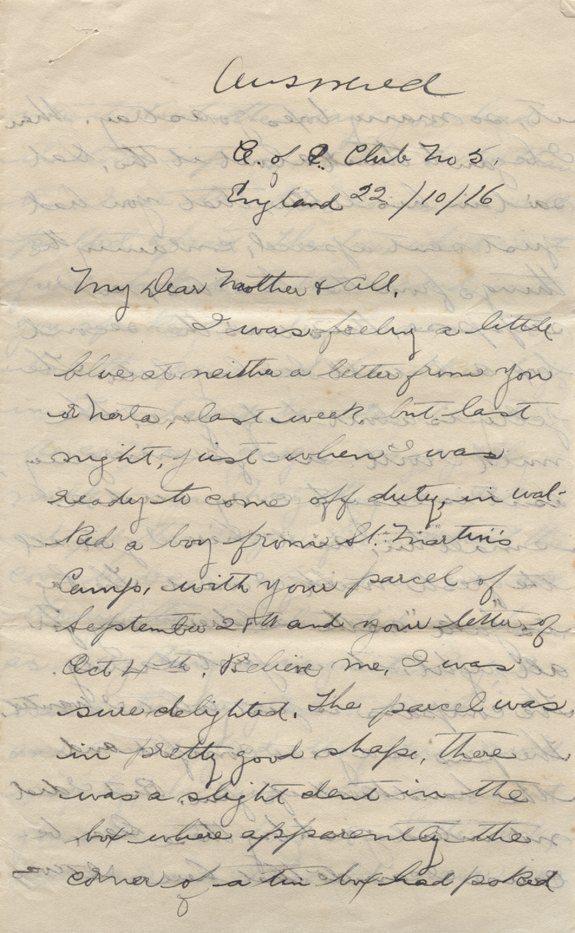 Answered
C. of E. Club No 5.
England 22/10/16
My Dear Mother & All,
I was feeling a little
blue at neither a letter from you
or Nerta, last week, but last
night, just when I was
ready to come off duty, in wal-
ked a boy from St. Martin's
Camp, with your parcel of
September 28th and your letter of
Oct 4th. Believe me, I was
sure delighted. The parcel was
in pretty good shape, there
was a slight dent in the
box where apparently the
corner of a tin box had poked